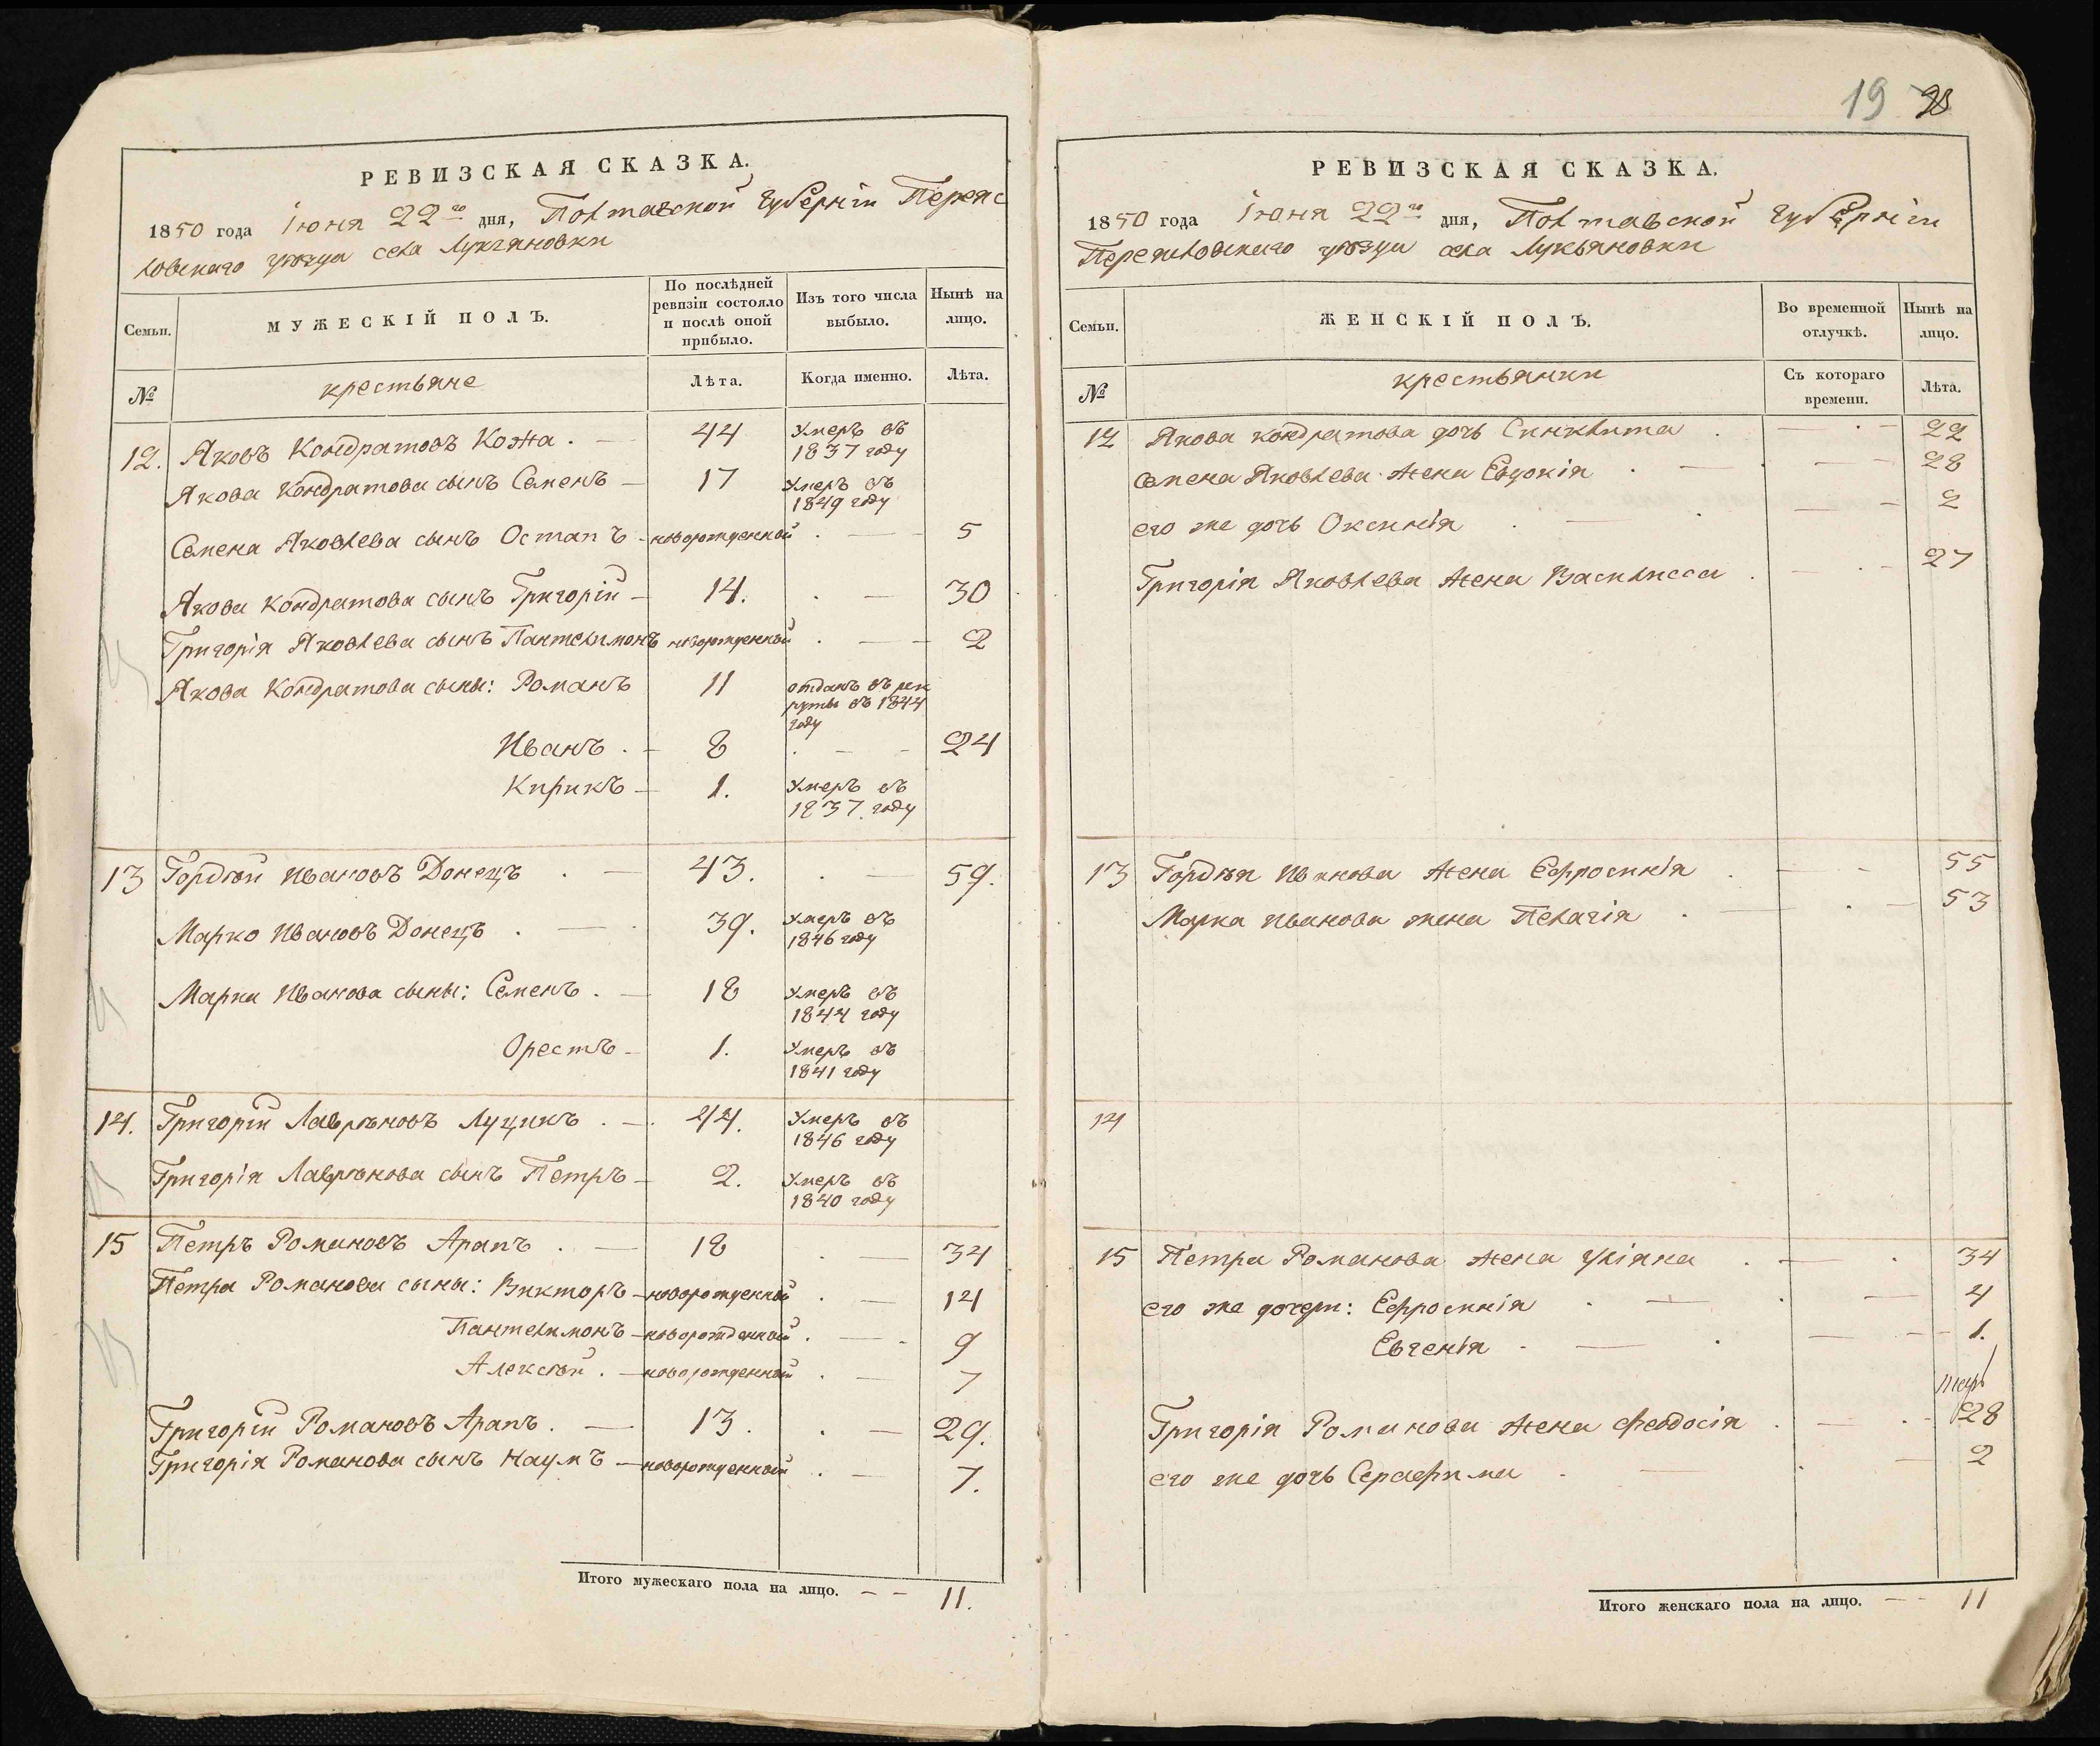 РЕВИЗСКАЯ СКАЗКА.
1850 года Іюня 22го дня, Полтавской Губерніи Переяс
ловскаго уѣзда села Лукьяновки
Семьи.
МУЖЕСКІЙ ПОЛЪ.
По послѣдней ревизіи состояло и послѣ оной прибыло.
Изъ того числа выбыло.
Нынѣ на лицо.
№
крестьяне
Лѣта.
Когда именно.
Лѣта.
12. Яковъ Кондратовъ Кожа . — 44 Умеръ въ 1837 году
Якова Кондратова сынъ Семенъ — 17 Умеръ въ 1849 году
Семена Яковлева сынъ Остапъ — новорожденный . — 5
Якова Кондратова сынъ Григорій — 14. . — 30
Григорія Яковлева сынъ Пантелимонъ новорожденный . — 2
Якова Кондратова сыны: Романъ 11 отданъ въ рекруты въ 1844 году
Иванъ . — 8 . — - 24
Кирикъ — 1. Умеръ въ 1837. году
13 Гордѣй Ивановъ Донецъ . — 43. . — 59.
Марко Ивановъ Донецъ . — . 39. Умеръ въ 1846 году
Марка Иванова сыны: Семенъ . — 18 Умеръ въ 1844 году
Орестъ — 1. Умеръ въ 1841 году
14. Григорій Лаврѣновъ Луцикъ . — . 44. Умеръ въ 1846 году
Григорія Лаврѣнова сынъ Петръ — 2. Умеръ въ 1840 году
15 Петръ Романовъ Арапъ . — 18 . — 34
Петра Романова сыны: Викторъ — новорожденный . — 14
Пантелимонъ — новорожденный . — . 9
Алексѣй . — новорожденный . — 7
Григорій Романовъ Арапъ . — 13. . — 29.
Григорія Романова сынъ Наумъ — новорожденный . — 7.
Итого мужескаго пола на лицо. — — 11.
19
РЕВИЗСКАЯ СКАЗКА.
1850 года Іюня 22го дня, Полтавской Губерніи
Переяловскаго уѣзда села Лукьяновки
Семьи.
ЖЕНСКІЙ ПОЛЪ.
Во временной отлучкѣ.
Нынѣ на лицо.
№
крестьянки
Съ котораго времени.
Лѣта.
12 Якова Кондратова дочь Синклита . — . — 22
Семена Яковлева жена Евдокія . — . — — 28
его же дочь Оксинія . — . — — 2
Григорія Яковлева жена Василисса . — . — 27
13 Гордѣя Иванова жена Ефросинія . — — 55
Марка Иванова жена Пелагія . — . — 53
14
15 Петра Романова жена Уліяна . — . 34
его же дочери: Ефросинія . — . — 4
Евгенія . — . — — 1.
Григорія Романова жена Феодосія . — . — 28
его же дочь Серафима . — . — 2
Итого женскаго пола на лицо. — — 11